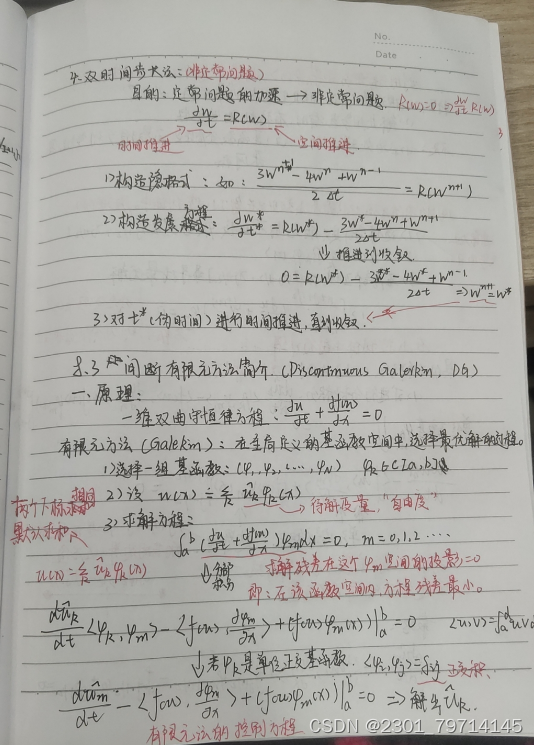 No.
Date
4. 双时间步长法：(非定常问题)
目的：定常问题的加速 → 非定常问题 R(w)=0 ⇒ dw/dt R(w)
dw/dt = R(w)
时间推进 空间推进
1) 构造隐格式：如：(3W^{n+1} - 4W^n + W^{n-1})/(2Δt) = R(W^{n+1})
2) 构造发展方程：dw*/dt* = R(W*) - (3W* - 4W^n + W^{n+1})/(2Δt)
↓ 推进到收敛
0 = R(W*) - (3W* - 4W* + W^{n-1})/(2Δt) ⇒ W^{n+1} = W*
3) 对t*(伪时间)进行时间推进，直到收敛.
8.3 间断有限元方法简介. (Discontinuous Galerkin, DG)
一、原理：
一维双曲守恒律方程：du/dt + df(u)/dx = 0
有限元方法 (Galerkin)：在全局定义的基函数空间中，选择最优解的过程。
1) 选择一组基函数：(φ1, φ2, ..., φN) φk ∈ C[a,b]
两个下标相同 默认求和
2) 设 u(x) ≐ Σ_k û_k φ_k(x)
待解变量，"自由度"
3) 求解方程：
∫_a^b (du/dt + df(u)/dx) φm dx = 0, m = 0,1,2 ....
u(x) = Σ_k û_k φ_k(x)
↓ 分部积分
求解残差在这个φm空间的投影=0
即：在该函数空间内，方程残差最小。
dû_k/dt <φk, φm> - <f(u), dφm/dx> + (f(u)φm(x))|_a^b = 0 <u,v> = ∫_a^b uv d
↓ 若φk是单位正交基函数. <φi, φj> = δij 正交
dû_m/dt - <f(u), dφm/dx> + (f(u)φm(x))|_a^b = 0 ⇒ 解出 û_k.
有限元法的控制方程
CSDN @2301_79714145